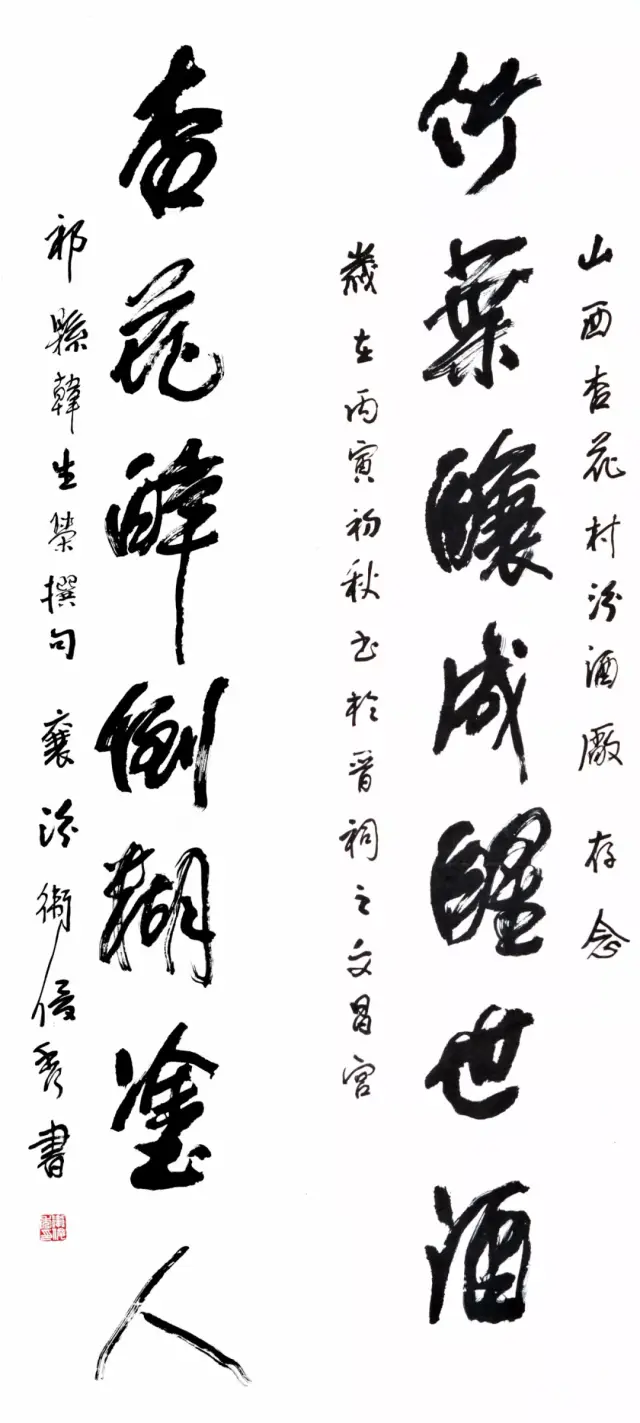 山西杏花村汾酒廠 存念
竹葉釀成醒世酒
歲在丙寅初秋书於晋祠之文昌宫
杏花醉倒糊塗人
祁縣韓生榮撰句 襄汾衛俊秀書